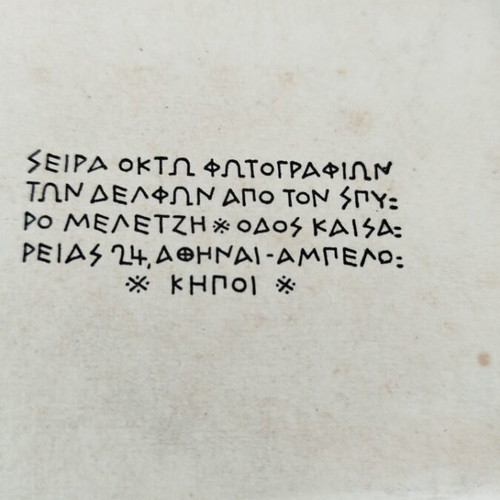 ΣΕΙΡΑ ΟΚΤΩ ΦΩΤΟΓΡΑΦΙΩΝ
ΤΩΝ ΔΕΛΦΩΝ ΑΠΟ ΤΟΝ ΣΠΥ=
ΡΟ ΜΕΛΕΤΖΗ ※ ΟΔΟΣ ΚΑΙΣΑ=
ΡΕΙΑΣ 24, ΑΘΗΝΑΙ - ΑΜΠΕΛΟ=
※ ΚΗΠΟΙ ※